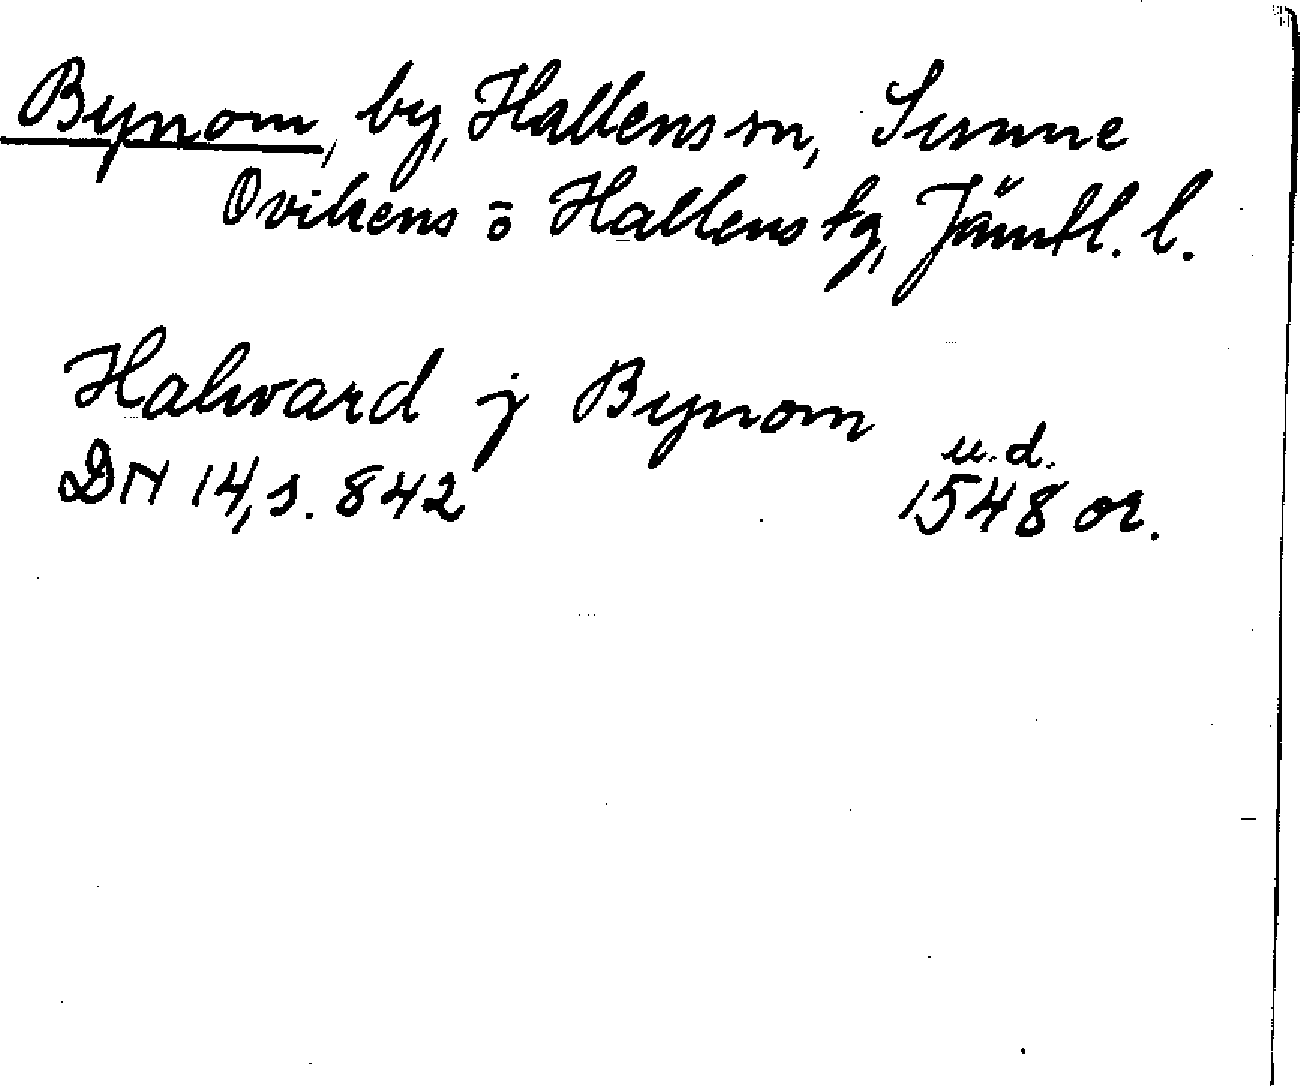 Bynom, by, Hallens sn, Sunne
Ovikens o Hallens tg, Jämtl. l.
Halvard j Bynom
u.d.
DN 14, s. 842 1548 or.